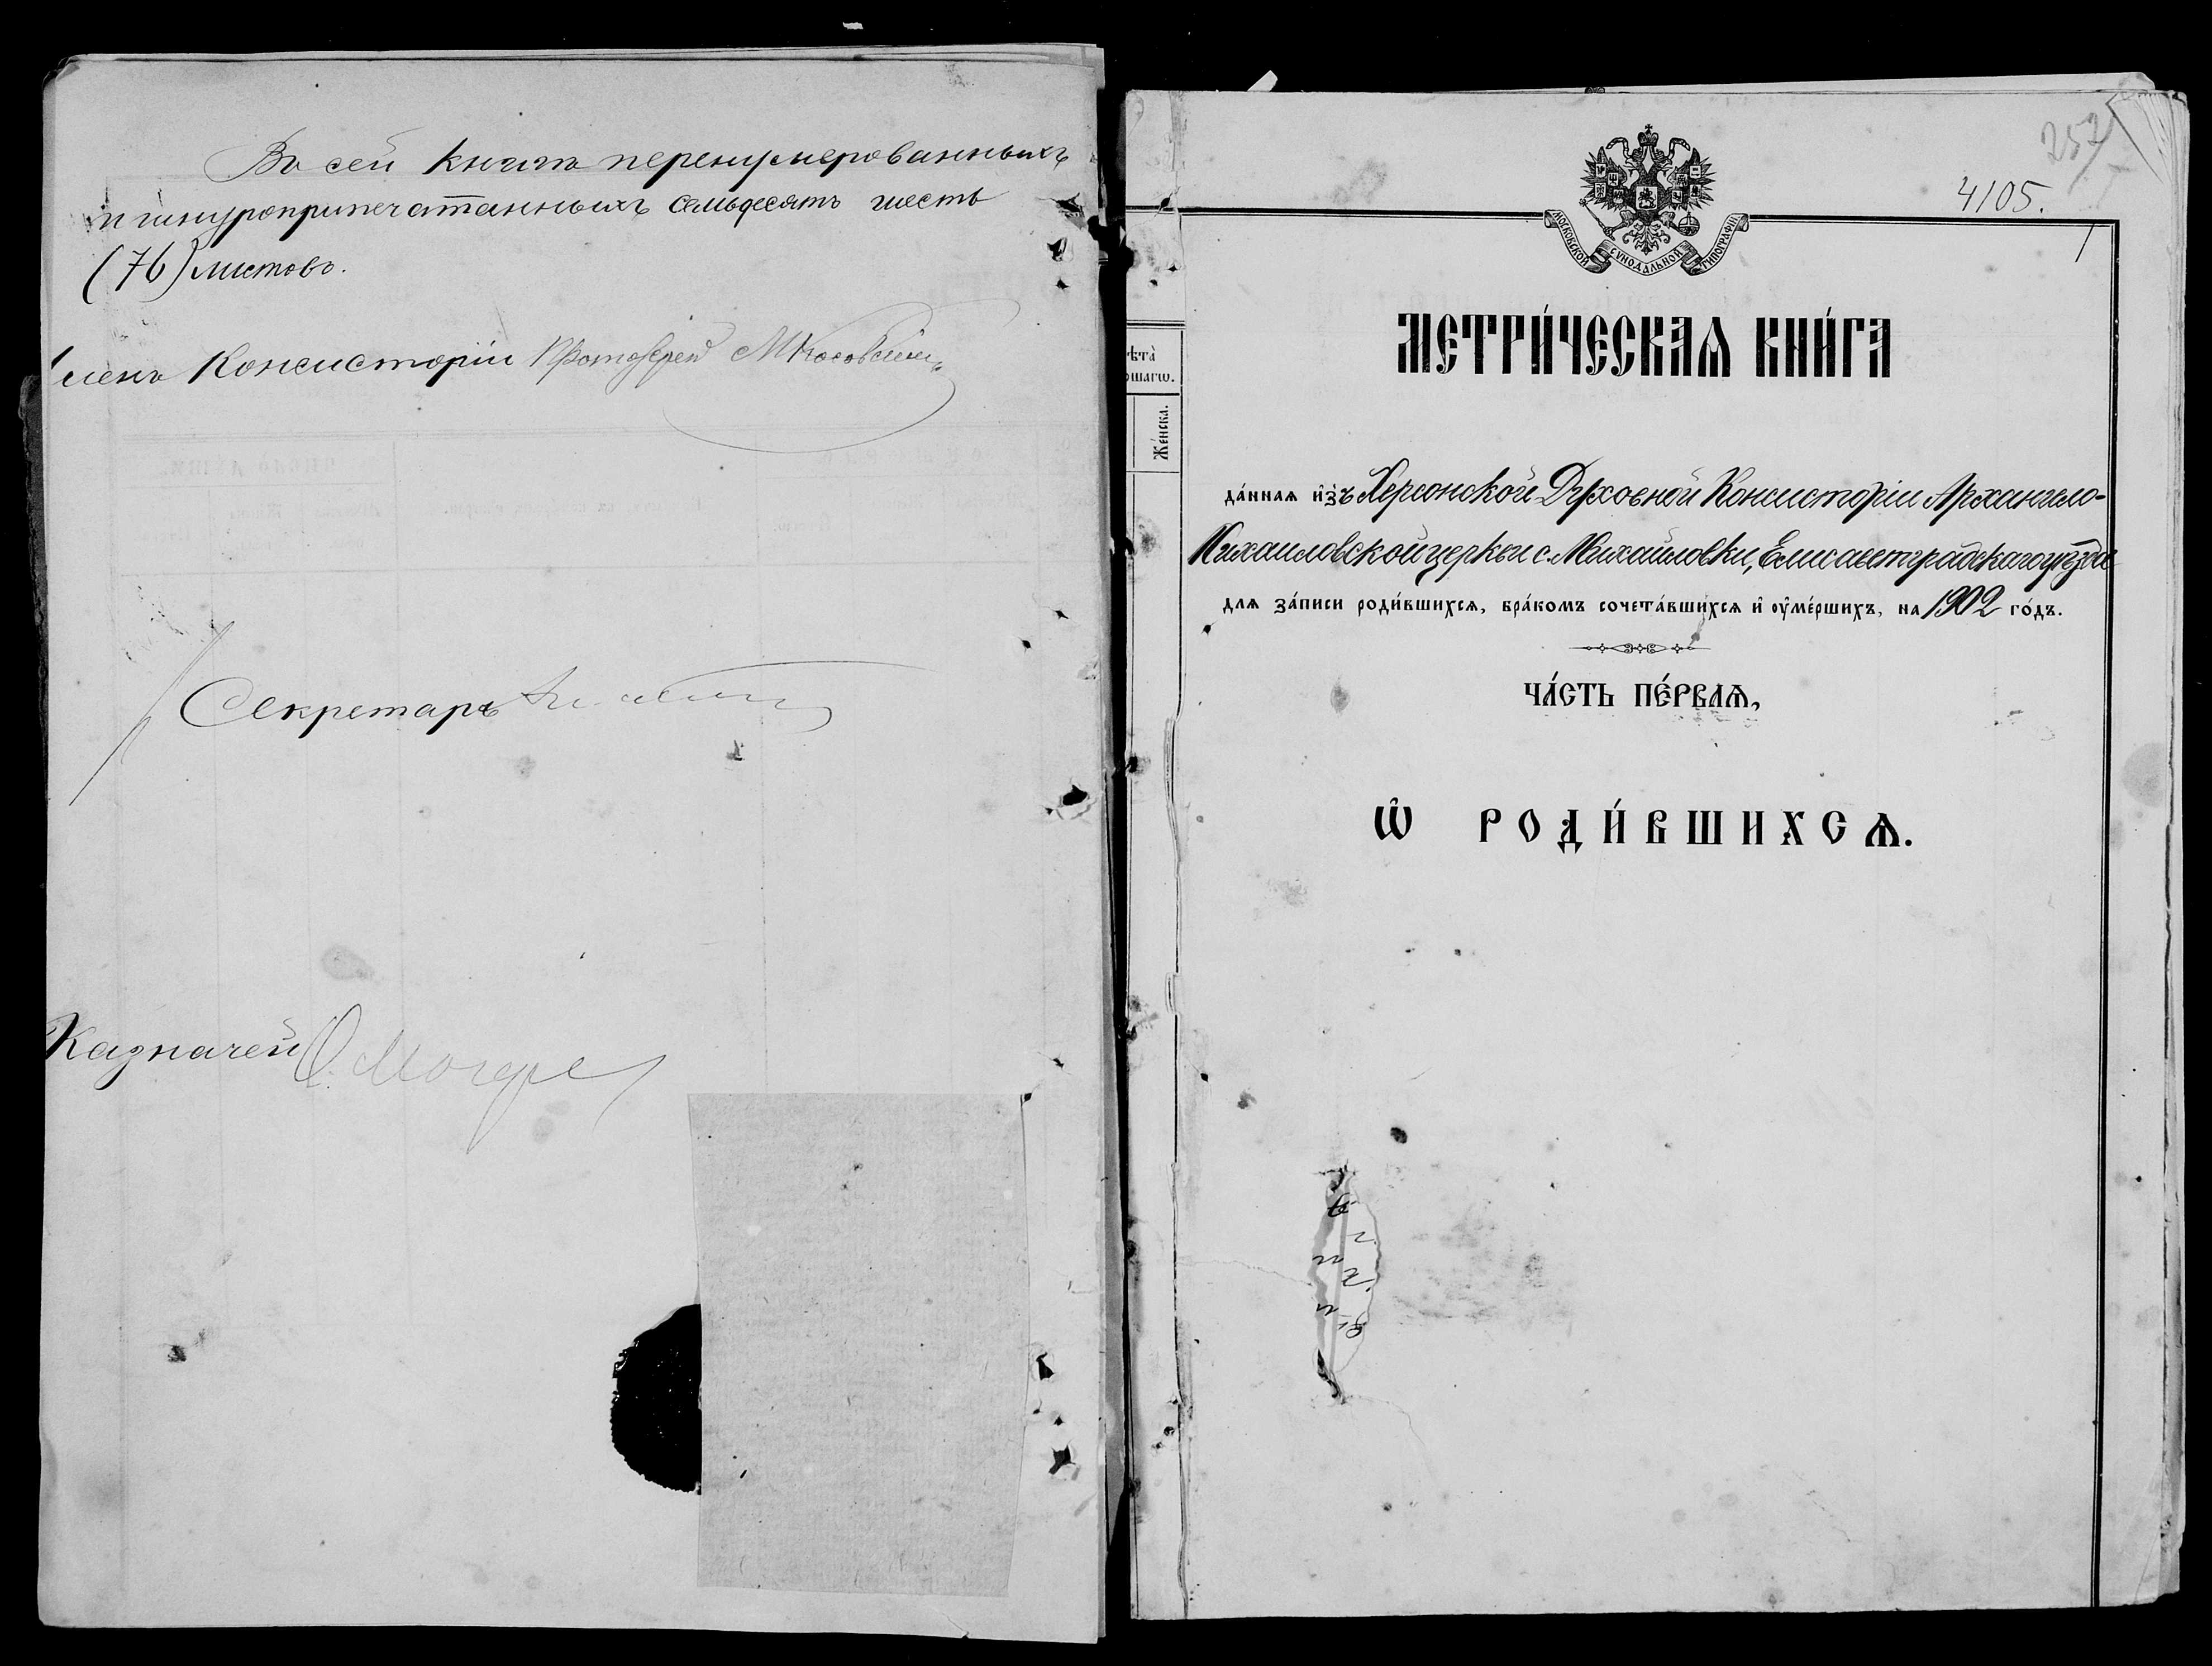 Въ сей книгѣ перенумерованныхъ
и шнуроприпечатанныхъ семьдесятъ шесть
(76) листовъ.
Членъ Консисторіи Протоіерей
Секретарь
Казначей
ѣта̀
Же́нска.
257
4105.
1
МОСКОВСКОЙ СѴНОДАЛЬНОЙ ТИПОГРАФІИ
МЕТРИ́ЧЕСКАѦ КНИ́ГА
да́ннаѧ и҆зъ Херсонской Духовной Консисторіи Архангело-
Михаиловской церкви с. Михайловки, Елисаветградскаго уѣзда
для за́писи роди́вшихсѧ, бра́комъ сочета́вшихсѧ и҆ ᲂу҆ме́ршихъ, на 1902 го́дъ.
ЧА́СТЬ ПЕ́РВАѦ,
Ѡ҆ РОДИ́ВШИХСѦ.